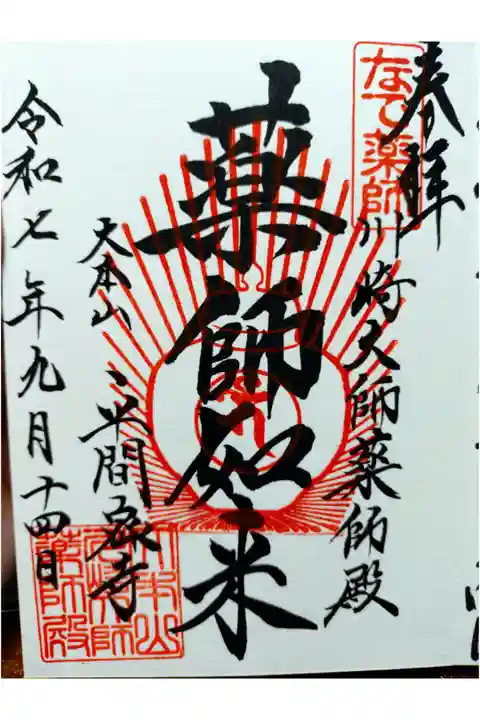 奉拝
なで薬師
川崎大師薬師殿
薬師如来
大本山
平間寺
令和七年九月十四日
大本山
川崎大師
薬師殿